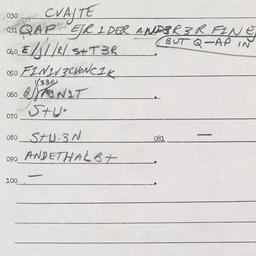 030 CVAJTE
031 QAP E/R IDER ANDR3R FINE
(BUT Q-AP IN
040 E/J/I/R/ S+T3R
050 FINIV3CVONCIK
060 NIT
070 S+U.
080 S+U.3N 081 —
090 ANDETHALB+
100 —